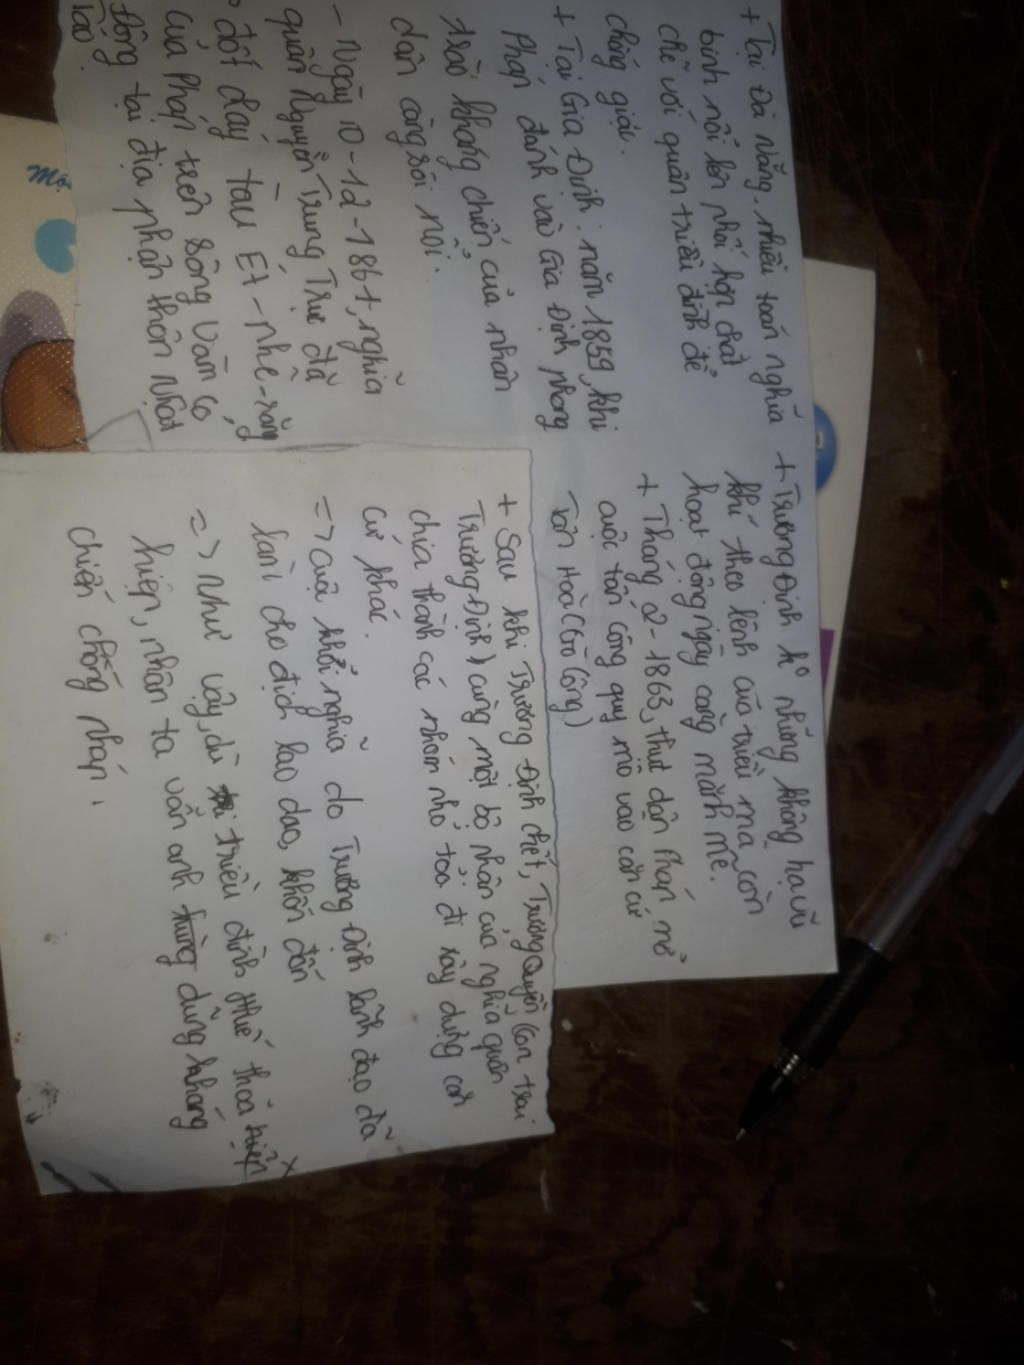 + Tại Đà Nẵng, nhiều toán nghĩa
binh nổi lên phối hợp chặt
chẽ với quân triều đình để
chống giặc.
+ Tại Gia Định. năm 1859, khi
Pháp đánh vào Gia Định phong
trào kháng chiến của nhân
dân càng sôi nổi.
- Ngày 10-12-1861, nghĩa
quân Nguyễn Trung Trực đã
đốt cháy tàu Ét-nhê-răng
của Pháp trên sông Vàm Cỏ
Đông tại địa phận thôn Nhật
Tảo
+ Trương Định k° những không hạ vũ
khí theo lệnh của triều mà còn
hoạt động ngày càng mãnh mẽ.
+ Tháng 2-1863, thực dân Pháp mở
cuộc tấn công quy mô vào căn cứ
Tân Hoà (Gò Công)
+ Sau khi Trương Định chết, Trương Quyền (con trai
Trương Định) cùng một bộ phận của nghĩa quân
chia thành các nhóm nhỏ tỏa đi xây dựng căn
cứ khác.
=> Cuộc khởi nghĩa do Trương Định lãnh đạo đã
làm cho địch lao đao, khốn đốn
=> Như vậy, dù triều đình Huế thỏa hiện
hiệp, nhân ta vẫn anh hùng dũng kháng
chiến chống Pháp.
Một